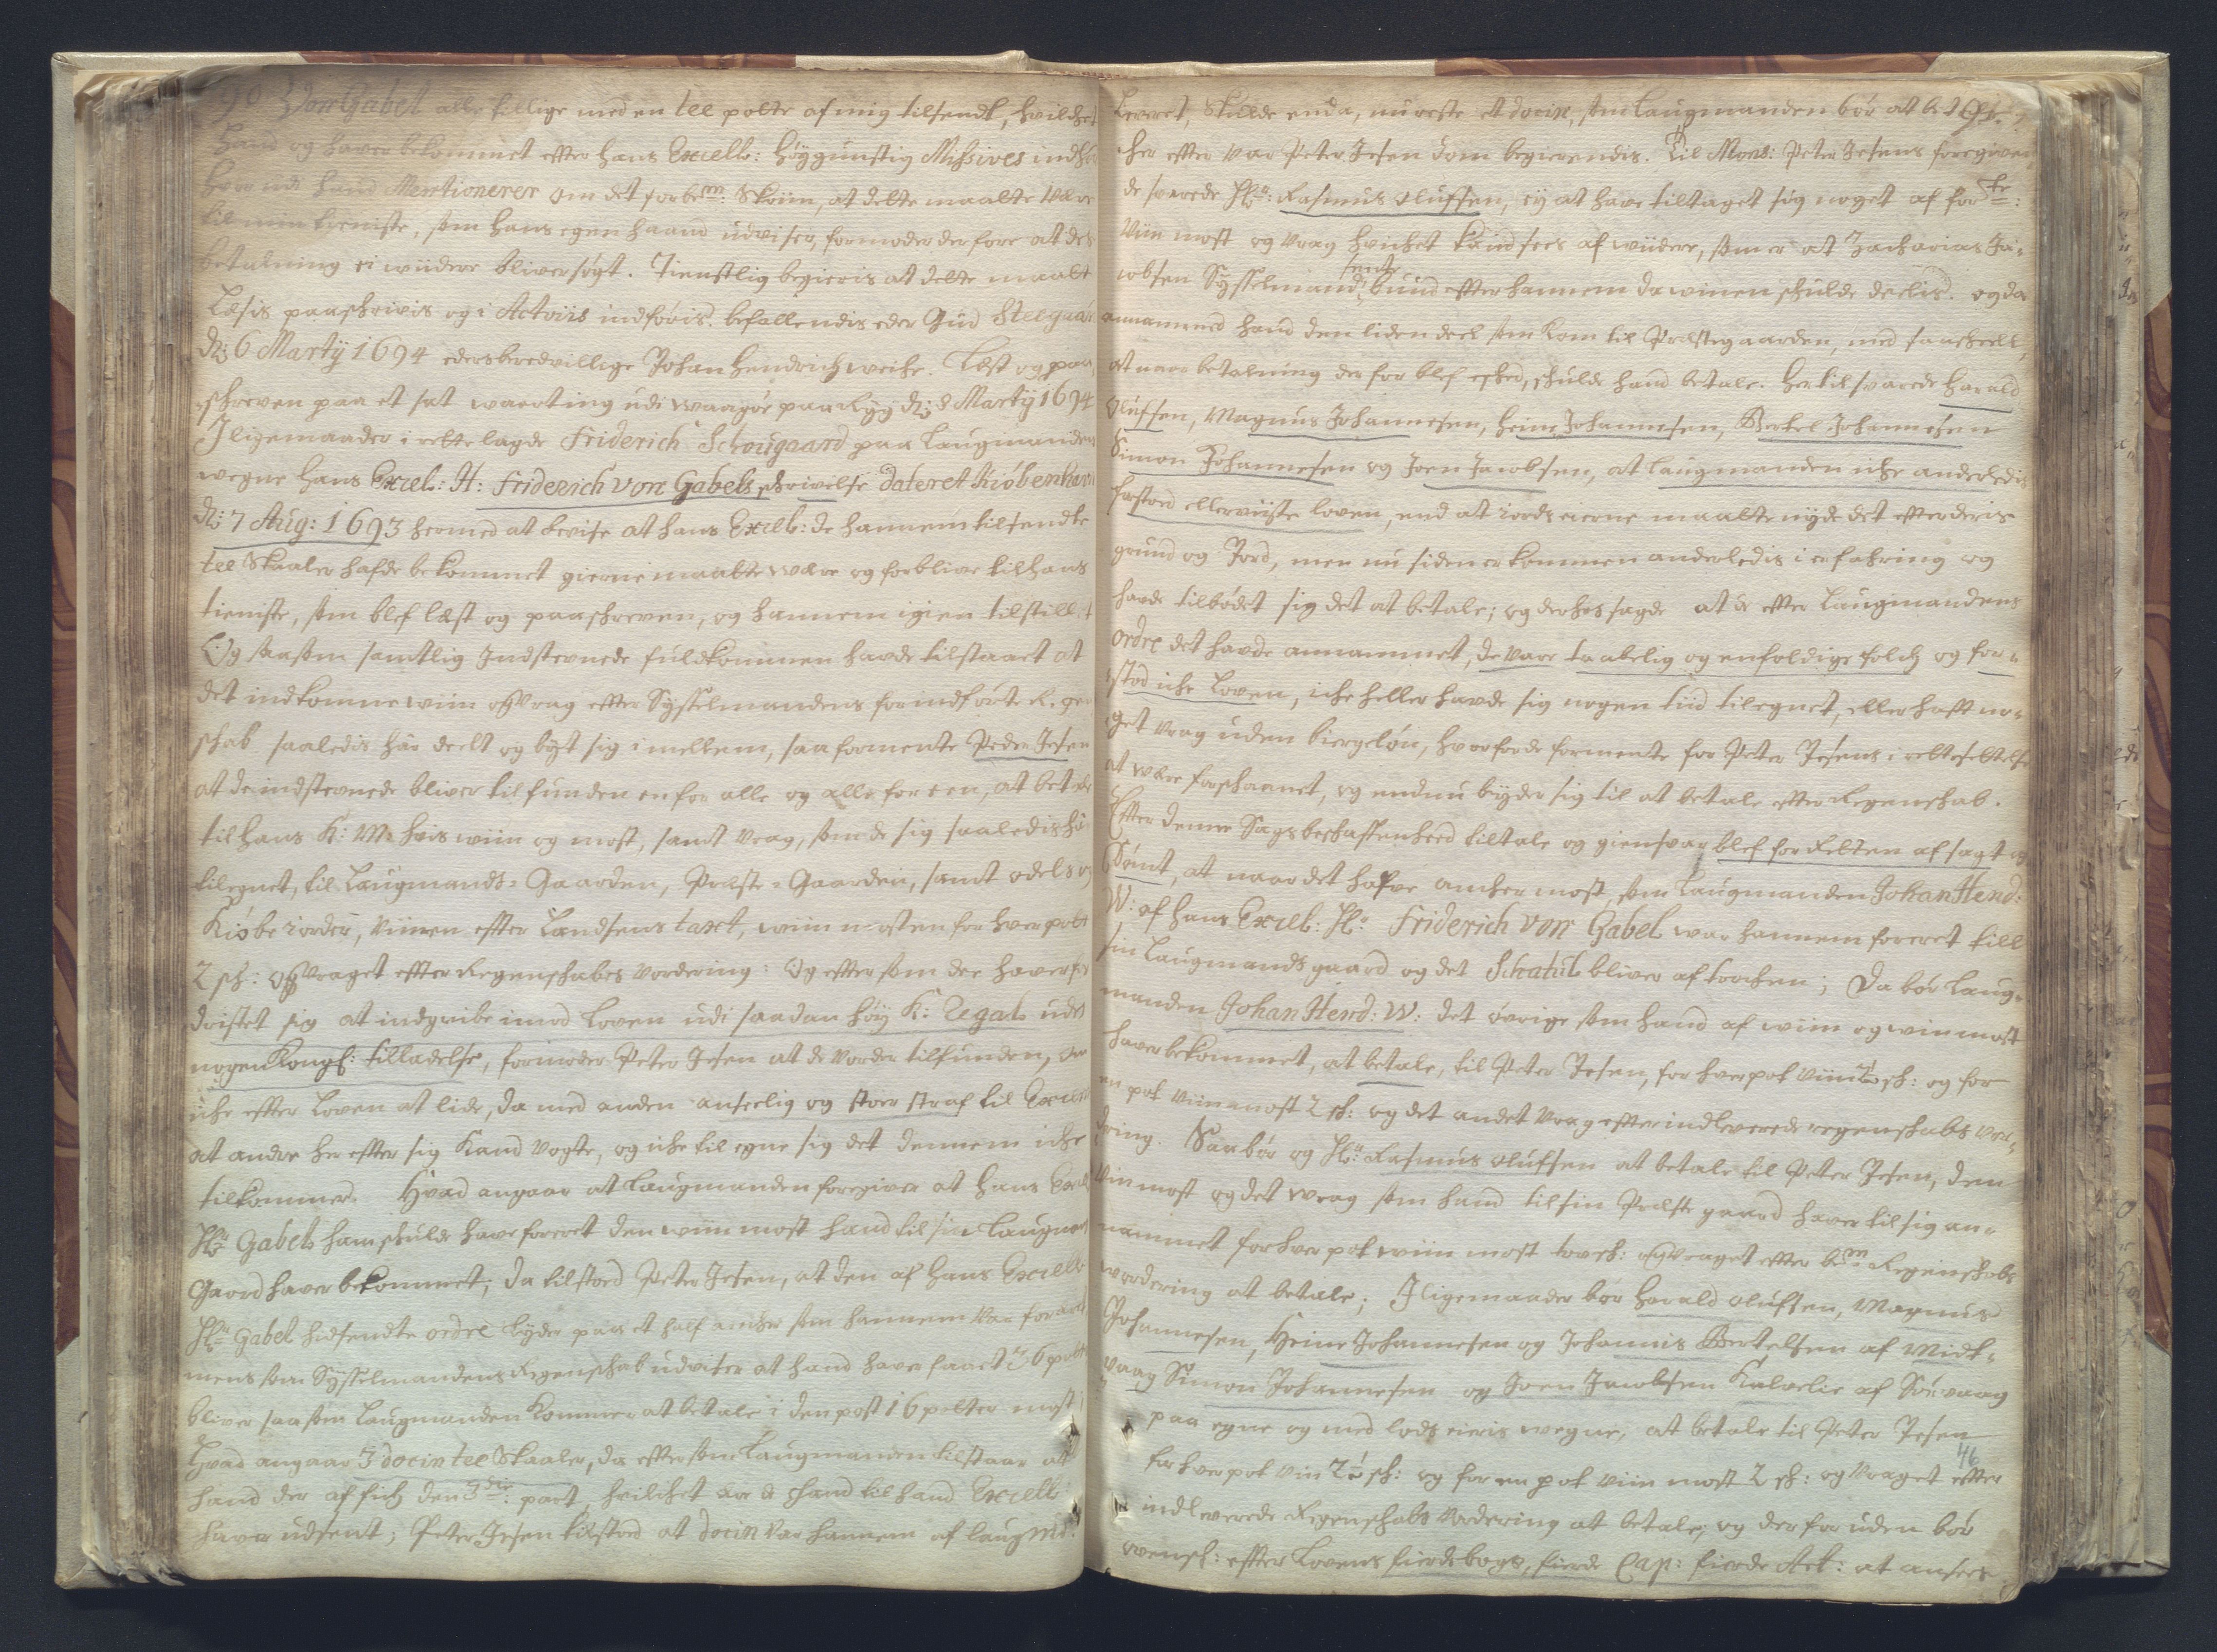 90 Von Gabel alle tillige med en tee polte af mig tilsendt, hvilchet
hand og haver bekommet efter hans Excell: høygunstig Missives indhold
hvor udi hand Mentionerer om det forbem: Skiin, at dette maatte være
til min tieniste, som hans egen haand udviser, formoder derfore at des
betalning ei widere bliver søgt. Tienstlig begieris at dette maatte
Læsis paaschrivis og i Actviis indføris. befallendis eder Gud Steegaard
d: 6 Martij 1694 eders beredvillige Johan Hendrich weihe. Læst og paa
schreven paa et sat waarting udi waagøe paa Ryg d: 8 Martij 1694
Jligemaader i rette lagde Friderich Schougaard paa Laugmandens
wegne hans Excel: H: Friderich von Gabels schrivelse dateret Kiøbenhavn
d: 7 Aug: 1693 hermed at bevise at hans Excell: de hannem tilsendte
tee Skaaler hafde bekommet gierne maatte være og forblive til hans
tieniste, som blef læst og paaschreven, og hannem igien tilstillet
Og saasom samtlig Indstevnede fuldkommen havde tilstaaet at
det indkomne wiin og Vrag efter Sysselmandens for indførte Regen
schab saaledis har deelt og byt sig imellem, saa formente Peder Jesen
at de indstevnede bliver tilfunden en for alle og alle for een, at betale
til hans K: M: hvis wiin og most, samt Vrag, som de sig saaledis har
tilegnet, til Laugmands-Gaarden, Præste-Gaarden, samt odels og
Kiøbe iorder, Viinen efter Landsens taxt, wiin mosten for hver pott
2 sk: og Vraget efter Regenschabes Vordering: Og eftersom de haver for
dristet sig at indgribe imod Loven udi saadan høy K: Regal uden
nogen Kongl: tilladelse, formoder Peter Jesen at de vorder tilfunden, om
iche efter Loven at lide, da med anden anseelig og stoer straf til Exempel
at andre her efter sig kand vogte, og iche til egne sig det dennem iche
tilkommer. Hvad angaar at Laugmanden foregiver at hans Excell
Hr: Gabel ham schulde have foreret den wiin most hand til sin Laugmands
Gaard haver bekommet; da tilstoed Peter Jesen, at den af hans Excell:
Hr: Gabel hidsendte ordre lyder paa et half ancher som hannem var foræret
mens som Sysselmandens Regenschab udviser at hand haver faaet 36 potter
bliver saa som Laugmanden kommer at betale i den post 16 potter most
Hvad angaar 3 docin tee Skaaler, da eftersom Laugmanden tilstaar at
hand der af fich den 3die part, hvilchet hand til hand Excell
haver udsent; Peter Jesen tilstoed at docin var hannem af laugmd.
Leveret, skulde enda, nu reste et docin, som Laugmanden bør at betale. 91.
her efter var Peter Jesen dom begierendis. Til Mons: Peter Jesens foregiven
de svarede Hr: Rasmus Olufsen, ey at have tiltaget sig noget af forte:
Viin most og Vrag hvilchet kand sees af widere, som er at Zacharias Ja-
cobsen Sysselmand sente bud efter hannem da winen schulde deelis. og da
annammed hand den liden deel som kom til Præstegaarden, med saa skeel,
at naar betalning der for blef esched, schulde hand betale. Hertil svarede Harald
Olufsen, Magnus Johannesen, Heine Johannesen, Bertel Johannesen
Simon Johannesen og Joen Jacobsen, at Laugmanden iche anderledis
forstoed eller viiste Loven, end at iords eierne maatte nyde det efter deris
grund og Jord, men nu siden er kommen anderledis i erfahring og
havde tilbødet sig det at betale; og derhos sagde at de efter Laugmandens
ordre det havde annammet, de vare taabelig og enfoldige folch og for-
stod iche Loven, iche heller havde sig nogen tiid tilegnet, eller haft no-
get Vrag uden biergeløn, hvorfor de formente for Peter Jesens i rettesettelse
at være forschaanet, og endnu byder sig til at betale efter Regenschab.
Efter denne Sags beschaffenheed tiltale og giensvar blef for Retten afsagt og
dømt, at naar det halve ancher most, som Laugmanden Johan Hend:
W: af hans Excell: Hr: Friderich von Gabel war hannem foreret till
sin Laugmandsgaard og det Schatul bliver aftrochen; Da bør Laug-
manden Johan Hend: W: det øvrige som hand af wiin og winmost
haver bekommet, at betale, til Peter Jesen, for hver pot viin sk: og for
en pot viinmost 2 sk: og det andet Vrag efter indleverede regenschabs vor-
dring. Saa bør og Hr: Rasmus Olufsen at betale til Peter Jesen, den
Vinmost og det wrag som hand til sin Præstegaard haver til sig an-
nammet for hver pot wiin most tou sk: og Vraget efter bem: Regenschabs
wordering at betale; Jligemaader bør Harald Olufsen, Magnus
Johannesen, Heine Johannesen og Johannis Bertelsen af Midt-
vaag Simon Johannesen og Joen Jacobsen Kalvelie af Sørvaag
paa egne og med lods eieris wegne, at betale til Peter Jesen
46
for hver pot vin sk: og for en pot viin most 2 sk: og Vraget efter
indleverede Regenschabs Vordering at betale; og der for uden bør
efter Lovens fierde bogs, fierde Cap: fierde Art: at ansees